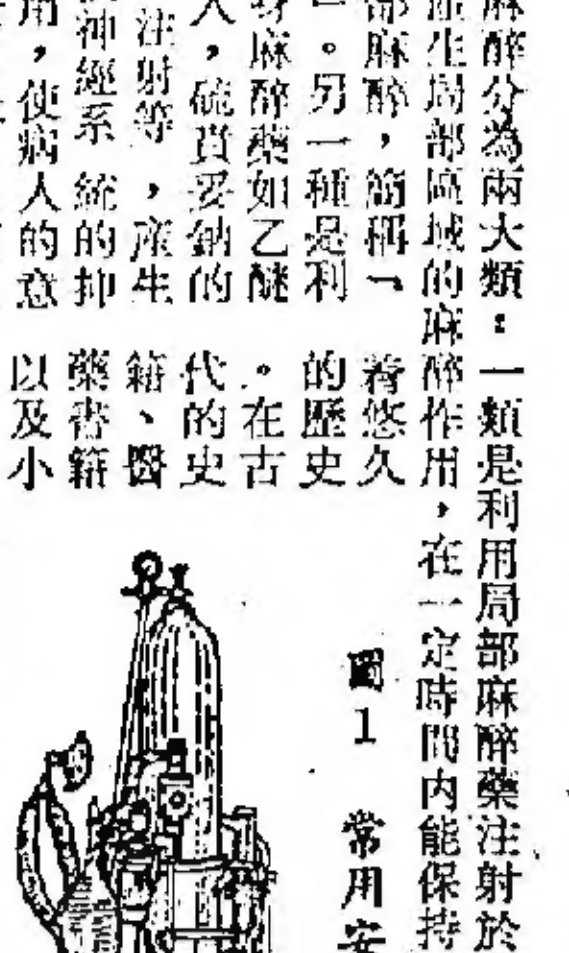 麻醉分為兩大類：一類是利用局部麻醉藥注射於
生局部區域的麻醉作用，在一定時間内能保持
部麻醉，簡稱﹁
」。另一種是利
身麻醉藥如乙醚
人，硫賁妥鈉的
注射等，產生
神經系統的抑
用，使病人的意
着悠久
的歷史
。在古
代的史
籍、醫
藥書籍
以及小
圖1 常用安